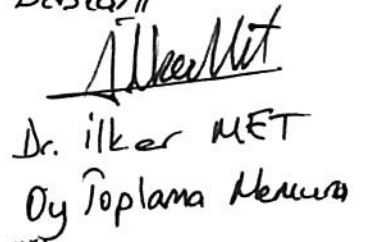 İlker Met
Dr. İlker MET
Oy Toplama Memuru